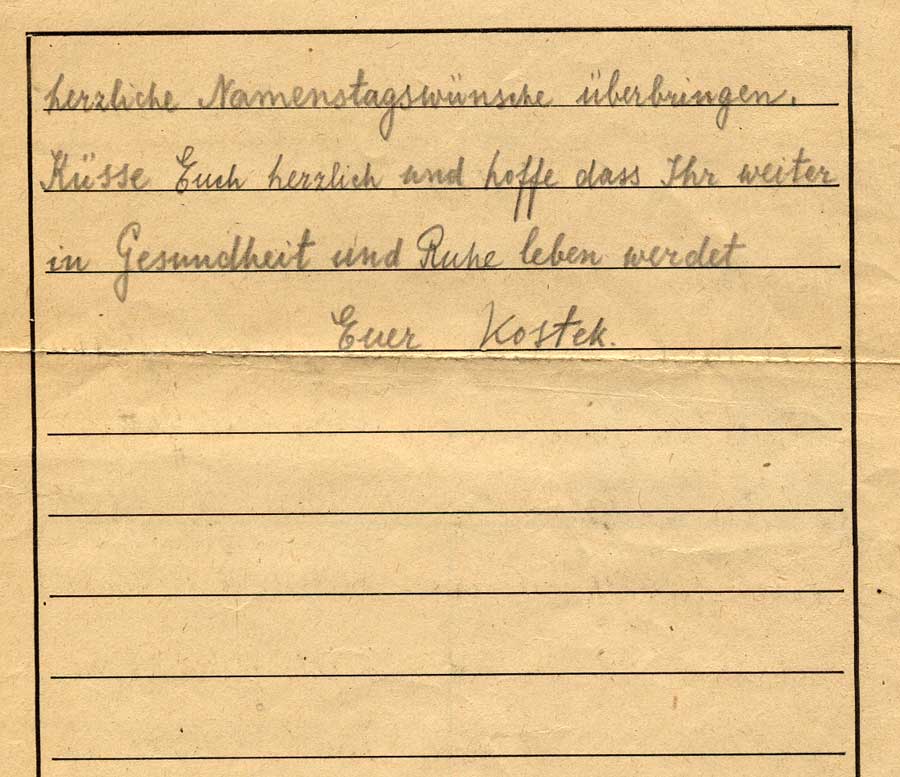 herzliche Namenstagswünsche überbringen.
Küsse Euch herzlich und hoffe dass Ihr weiter
in Gesundheit und Ruhe leben werdet
Euer Kostek.